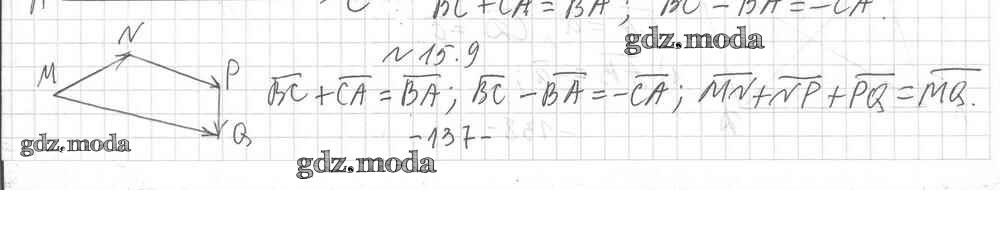 C BC + CA = BA; BC - BA = -CA.
gdz.moda
N №15.9
M P \overline{BC} + \overline{CA} = \overline{BA}; \overline{BC} - \overline{BA} = -\overline{CA}; \overline{MN} + \overline{NP} + \overline{PQ} = \overline{MQ}.
Q -137-
gdz.moda
gdz.moda